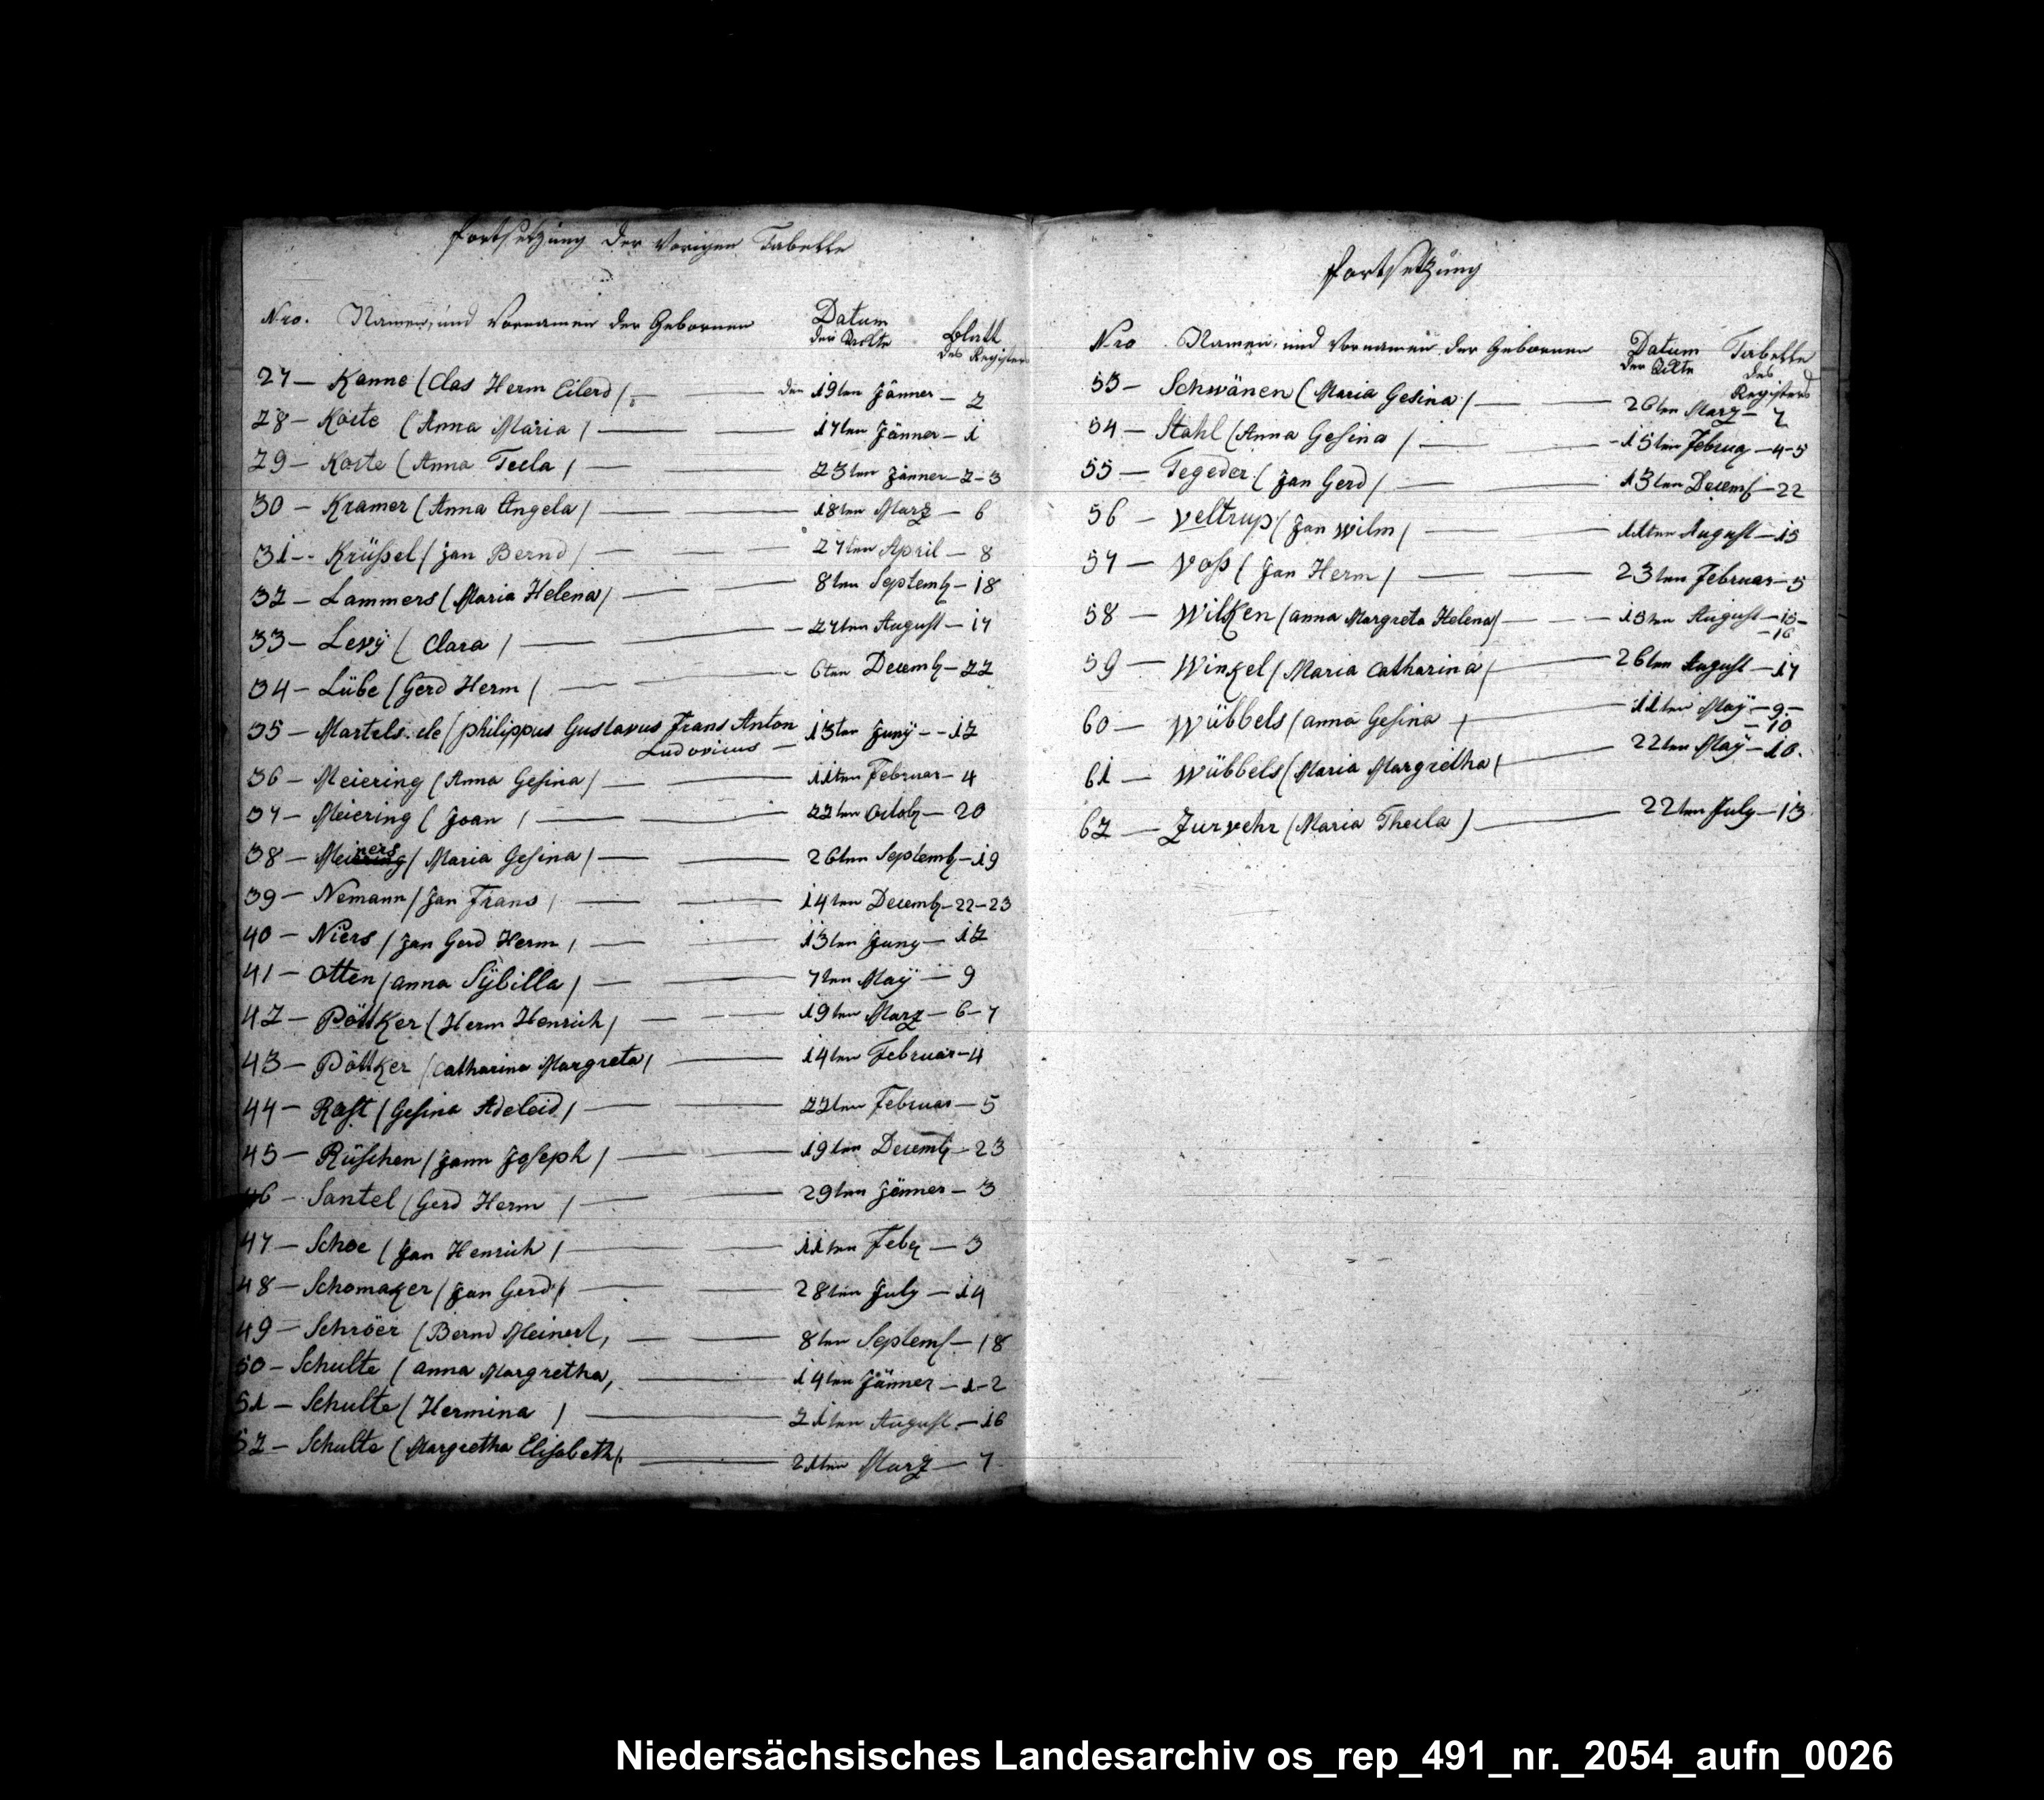 Fortsetzung der Vorigen Tabelle
Nro. Namen, und Vornamen der Gebornen Datum der Ackte Blatt des Registers
27 — Kanne (Clas Herm Eilerd) — — den 19ten Jänner — 2
28 — Koite (Anna Maria) — — 17ten Jänner — 1
29 — Koste (Anna Tecla) — — 23ten Jänner — 2-3
30 — Kramer (Anna Angela) — — 18ten Marz — 6
31 — Krüßel (Jan Bernd) — — 27ten April — 8
32 — Lammers (Maria Helena) — — 8ten Septemb — 18
33 — Levÿ (Clara) — — 27ten August — 17
34 — Lübe (Gerd Herm) — — 6ten Decemb — 22
35 — Martels. de (philippus Gustavus Frans Anton 13ten Junÿ — 12
Ludovicus —
36 — Meiering (Anna Gesina) — — 11ten Februar — 4
37 — Meiering (Joan) — — 22ten Octob — 20
38 — Meiners (Maria Gesina) — — 26ten Septemb — 19
39 — Nemann (Jan Frans) — — 14ten Decemb — 22-23
40 — Niers (Jan Gerd Herm) — — 13ten Juny — 12
41 — Otten (anna Sÿbilla) — — 7ten Maÿ — 9
42 — Pöttker (Herm Henrich) — — 19ten Marz — 6-7
43 — Pöttker (Catharina Margreta) — 14ten Februar — 4
44 — Rast (Gesina Adeleid) — — 22ten Februar — 5
45 — Rüschen (Jann Joseph) — — 19ten Decemb — 23
46 — Santel (Gerd Herm) — — 29ten Jänner — 3
47 — Schoe (Jan Henrich) — — 11ten Feb — 3
48 — Schomaker (Jan Gerd) — — 28ten July — 14
49 — Schröer (Bernd Meinert) — — 8ten Septemb — 18
50 — Schulte (anna Margretha) — 14ten Jänner — 1-2
51 — Schulte (Hermina) — 21ten August — 16
52 — Schulte (Margretha Elisabeth) — 21ten Marz — 7
Fortsetzung
Nro Namen, und Vornamen der Gebornen Datum der Ackte Tabelle des Registers
53 — Schwänen (Maria Gesina) — — 26ten Marz — 7
54 — Stahl (Anna Gesina) — — 15ten Februa — 4-5
55 — Tegeder (Jan Gerd) — — 13ten Decemb — 22
56 — Veltrup (Jan Wilm) — — 11ten August — 15
57 — Voss (Jan Herm) — — 23ten Februar — 5
58 — Wilken (Anna Margreta Helena) — — 15ten August — 15-
-16
59 — Winkel (Maria Catharina) — 26ten August — 17
60 — Wübbels (anna Gesina) — 11ten Maÿ — 9-
-10
61 — Wübbels (Maria Margretha) — 22ten Maÿ — 10.
62 — Zurvehr (Maria Thecla) — 22ten July — 13
Niedersächsisches Landesarchiv os_rep_491_nr._2054_aufn_0026